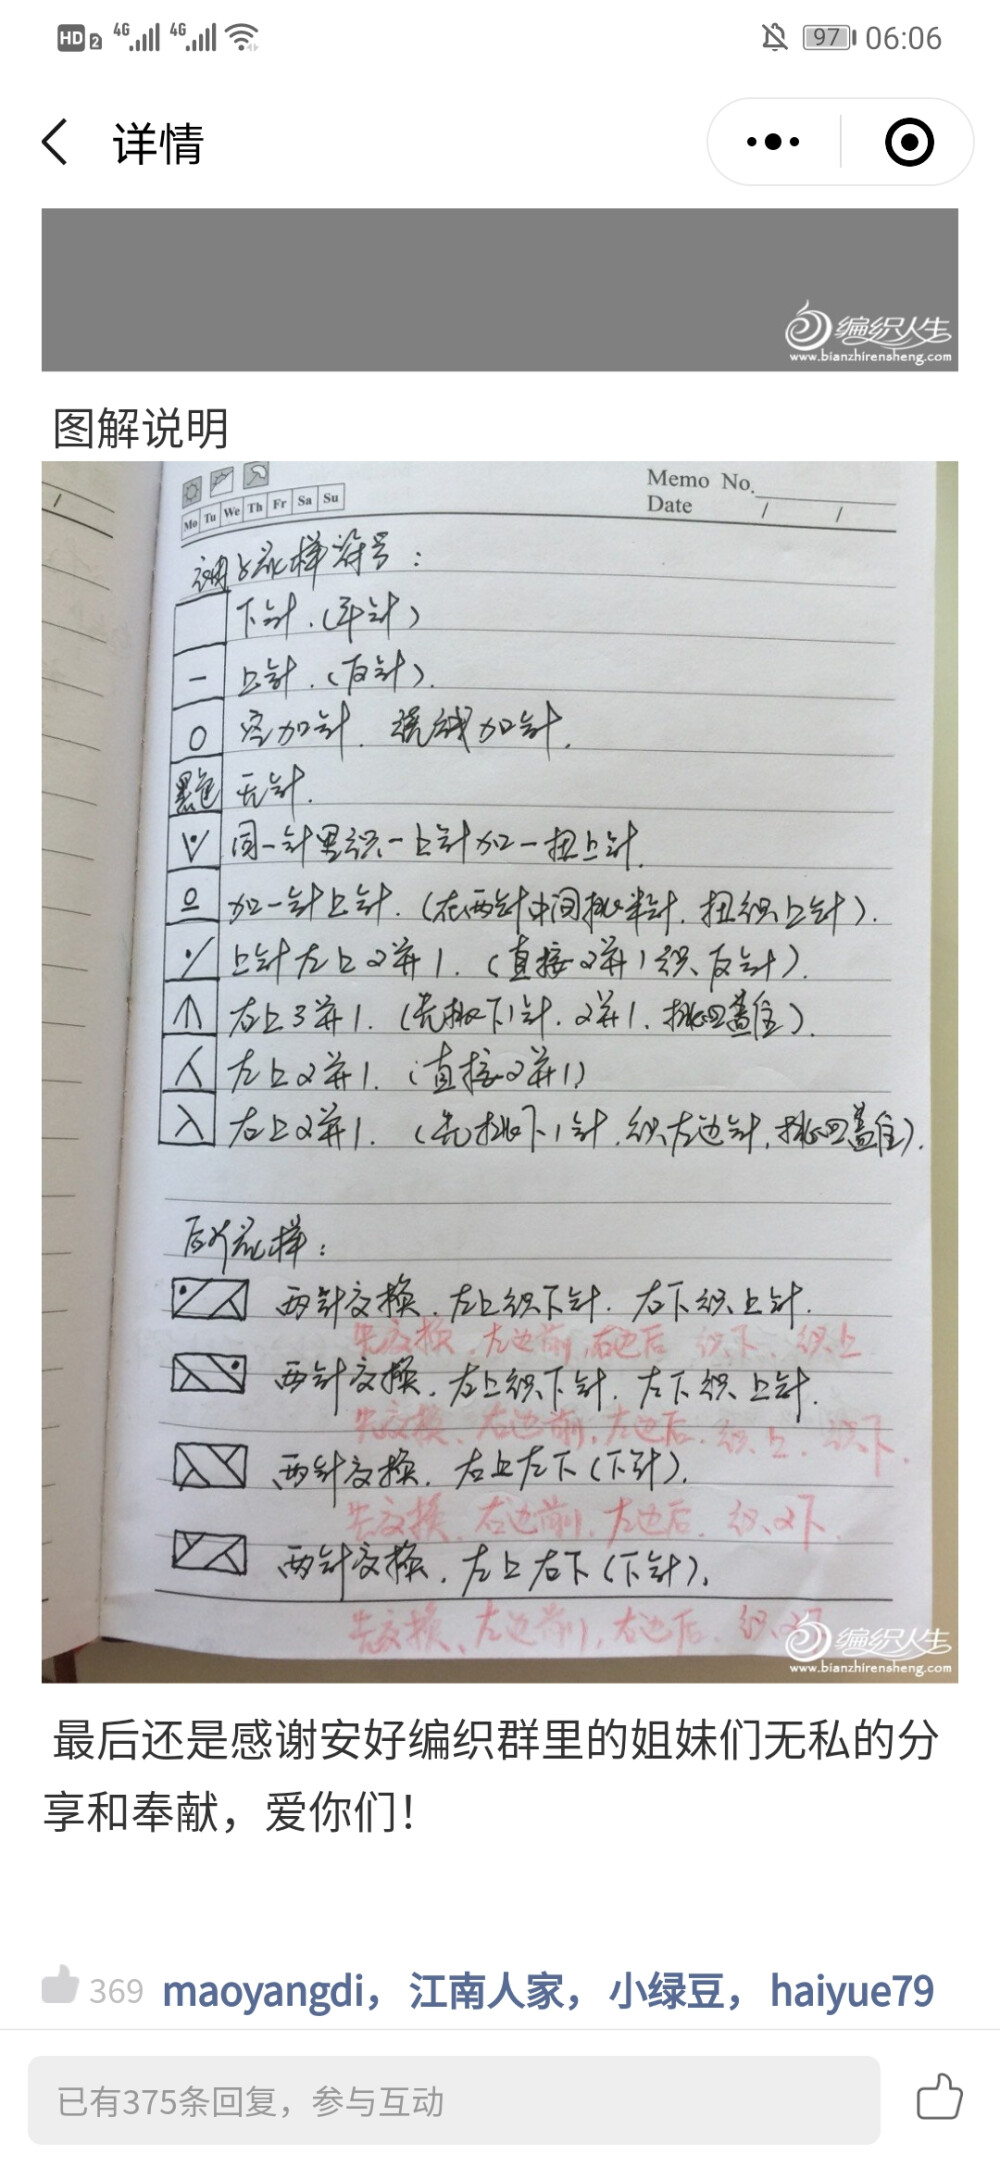 HD 2 4G 4G 97 06:06
详情
编织人生
www.bianzhirensheng.com
图解说明
Memo No.
Date / /
Mo Tu We Th Fr Sa Su
花样符号：
下针.(平针)
一 上针.(反针).
O 空加针. 绕线加针.
黑色 无针.
同一针里织一上针加一扭上针.
加一针上针.(在两针中间挑半针.扭织上针).
上针左上2并1.(直接2并1织反针).
右上3并1.(先挑下1针.2并1.挑回盖住).
人 左上2并1.(直接2并1)
入 右上2并1.(先挑下1针.织左边针.挑回盖住).
花样：
两针交换.左上织下针.右下织上针.
先交换.左边前,右边后 织下、织上
两针交换.左上织下针.左下织上针.
先交换、右边前,左边后.织上.织下.
两针交换.右上左下(下针).
先交换、右边前,左边后.织2下.
两针交换.左上右下(下针).
先交换、左边前,右边后.织2下
编织人生
www.bianzhirensheng.com
最后还是感谢安好编织群里的姐妹们无私的分
享和奉献，爱你们！
369 maoyangdi， 江南人家， 小绿豆， haiyue79
已有375条回复，参与互动